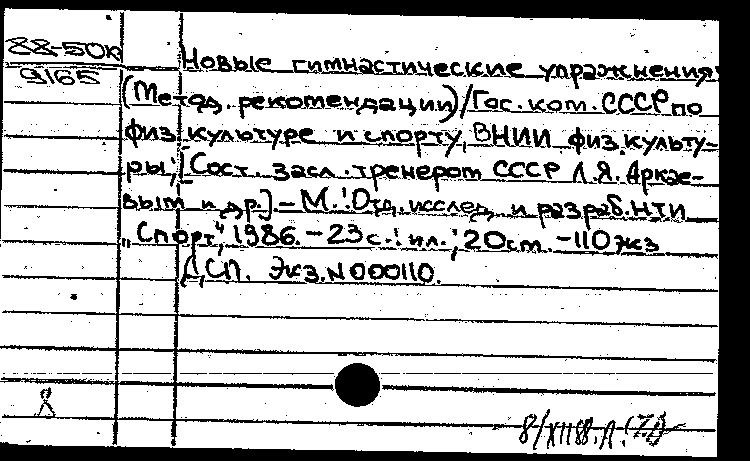 88-50к
9165
Новые гимнастические упражнения:
(Метод. рекомендации)/Гос. ком. СССР по
физ. культуре и спорту, ВНИИ физ. культу-
ры; [Сост. засл. тренером СССР Л.Я. Аркае-
вым и др.] – М.: Отд. исслед. и разраб. НТИ
„Спорт“, 1986. – 23 с.: ил.; 20 см. – 110 экз
ДСП. Экз. N 000110.
8
8/XII 88. Л.